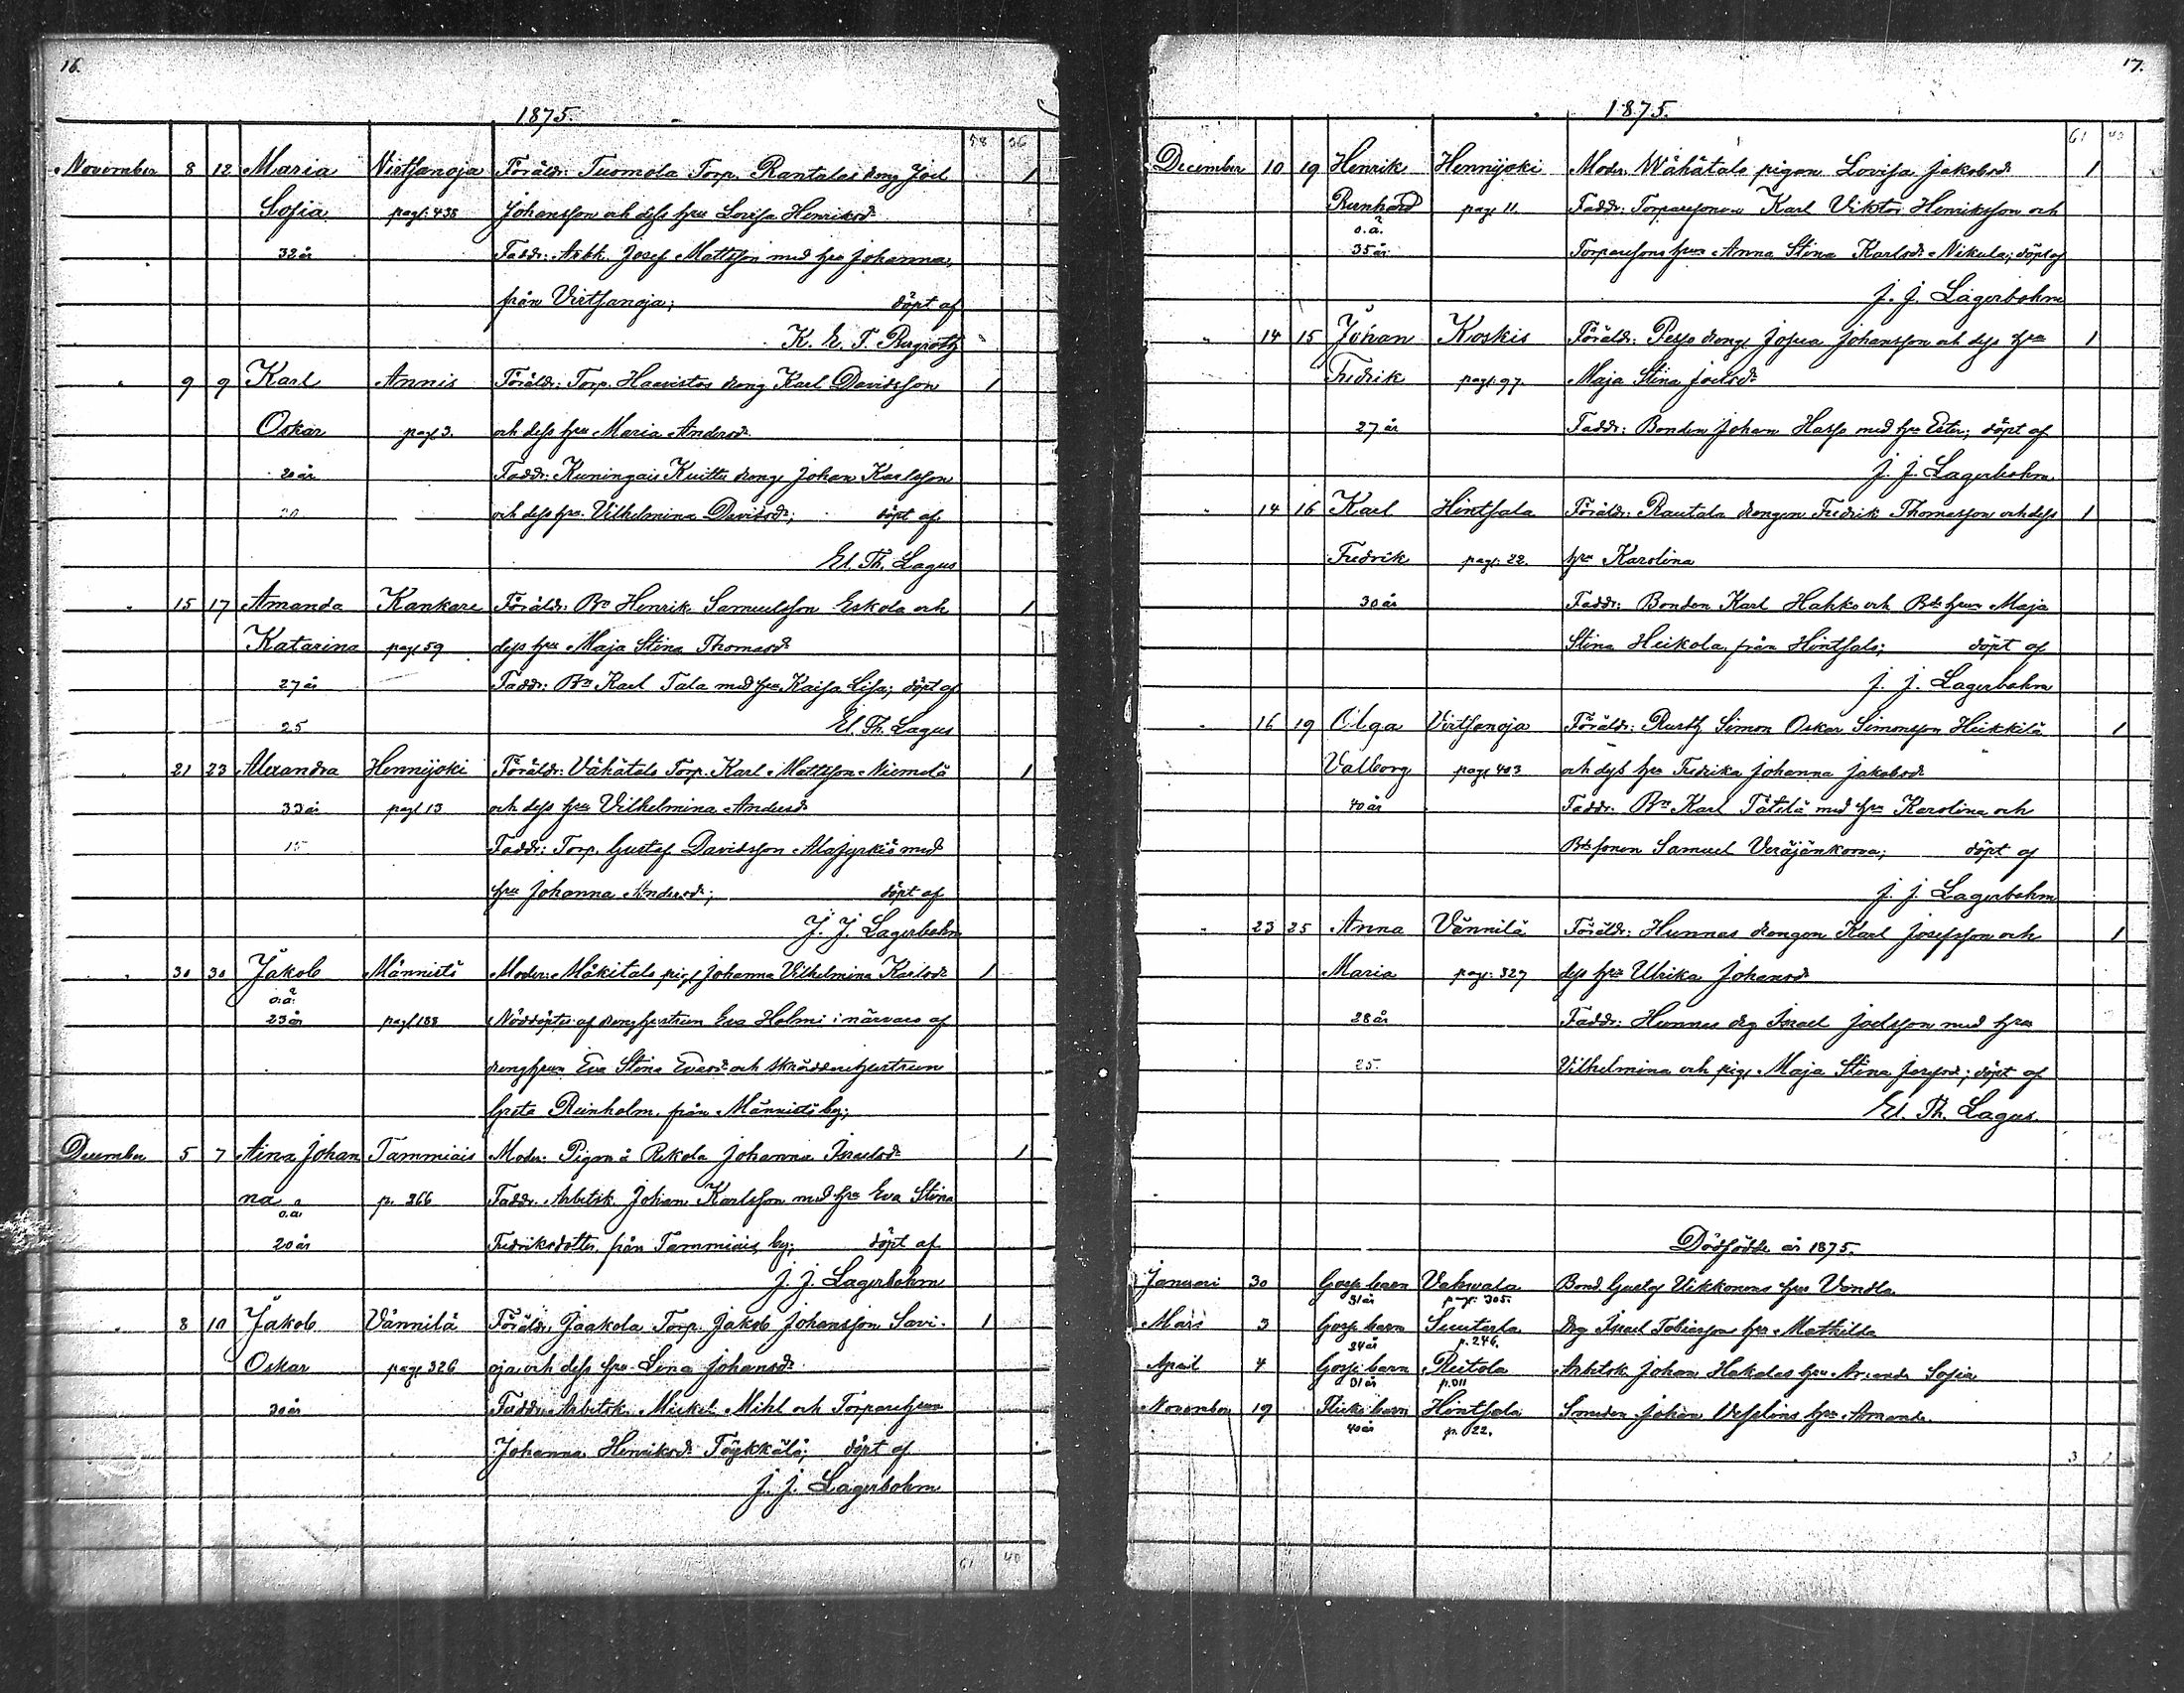 16.
1875.
58 36
November 8 12 Maria Virtsanoja Föräldr: Tuomola Torp. Rantalas dreng Joel 1
Sofia pag: 438 Johansson och dess hru Lovisa Henriksdr
32 år Faddr: Arbk. Josef Mattsson med hru Johanna,
från Virtsanoja; döpt af
K. E. T. Bergroth
" 9 9 Karl Annis Föräldr: Torp. Haavistos dreng Karl Davidsson 1
Oskar pag 3. och dess hru Maria Andersdr
20 år Faddr: Kuningais Kuittu dreng Johan Karlsson
20 och dess hru Vilhelmina Davidsdr; döpt af
El. Th. Lagus
" 15 17 Amanda Kankare Föräldr: Bn Henrik Samuelsson Eskola och 1
Katarina pag 59 dess hru Maja Stina Thomasdr
27 år Faddr: Bn Karl Tala med hru Kaisa Lisa; döpt af
25 El. Th. Lagus
" 21 23 Alexandra Hennijoki Föräldr: Vähätalo Torp. Karl Mattsson Niemelä 1
33 år pag 13 och dess hru Vilhelmina Andersdr
15 Faddr: Torp. Gustaf Davidsson Alasyrkiö med
hru Johanna Andersdr; döpt af
J. J. Lagerbohm
" 30 30 Jakob Männistö Moder: Mäkitalo pig Johanna Vilhelmina Karlsdr 1
o.ä.
23 år pag 188 Nöddöpter af drenghustrun Eva Holmi i närvaro af
drenghrun Eva Stina Evasdr och skräddarehustrun
Greta Reinholm, från Männistö by;
December 5 7 Aina Johan Tammiais Moder: Pigan å Rekola Johanna Israelsdr 1
na p. 366 Faddr. Arbetsk. Johan Karlsson med hru Eva Stina
o.ä.
20 år Fredriksdotter, från Tammiais by; döpt af
J. J. Lagerbohm
" 8 10 Jakob Vännilä Föräldr. Jaakola Torp. Jakob Johansson Savi- 1
Oskar pag: 326 oja och dess hru Lena Johansdr
30 år Faddr: Arbetsk. Mickel Mihl och Torparehrun
Johanna Henriksdr Töykkälä; döpt af
J. J. Lagerbohm
61 40
17.
1875.
61 40
December 10 19 Henrik Hennijoki Moder. Wähätalo pigan Lovisa Jakobsdr 1
Bernhard pag 11. Faddr: Torparesonen Karl Viktor Henriksson och
o.ä.
35 år Torparesons hrun Anna Stina Karlsdr Nikula; döpt af
J. J. Lagerbohm
" 14 15 Johan Koskis Föräldr: Pesso dreng Josua Johansson och dess hru 1
Fredrik pag: 97. Maja Stina Joelsdr
27 år Faddr: Bonden Johan Hasso med hru Ester; döpt af
J. J. Lagerbohm.
" 14 16 Karl Hintsala Föräldr: Rautala drengen Fredrik Thomasson och dess 1
Fredrik pag: 22. hru Karolina
30 år Faddr: Bonden Karl Hahko och Bde hrun Maja
Stina Heikola, från Hintsala; döpt af
J. J. Lagerbohm
" 16 19 Olga Virtsanoja Föräldr: Rusth Simon Oskar Simonsson Heikkilä 1
Valborg pag 403 och dess hru Fredrika Johanna Jakobsdr
40 år Faddr: Bn Karl Tätilä med hru Karolina och
Bdesonen Samuel Veräjänkorva; döpt af
J. J. Lagerbohm
" 23 25 Anna Vännilä Föräldr: Hunnas drengen Karl Josefsson och 1
Maria pag: 327 dess hru Ulrika Johansdr
28 år Faddr: Hunnas drg Israel Joelsson med hru
25 Vilhelmina och pig. Maja Stina Josefsdr; döpt af
El. Th. Lagus.
Dödfödde år 1875.
Januari 30 Gosse barn Vahvala Bond. Gustaf Ukkonens hru Vendla
31 år pag: 305.
Mars 3 Gosse barn Suutarla Drg Israel Tobiassons hru Mathilda
34 år p. 246.
April 4 Gosse barn Reitola Arbetsk. Johan Hakalas hru Amanda Sofia
31 år p. 011
November 19 Flicke barn Hintsala Smeden Johan Veselius hru Amanda.
40 år p. 022.
3 1